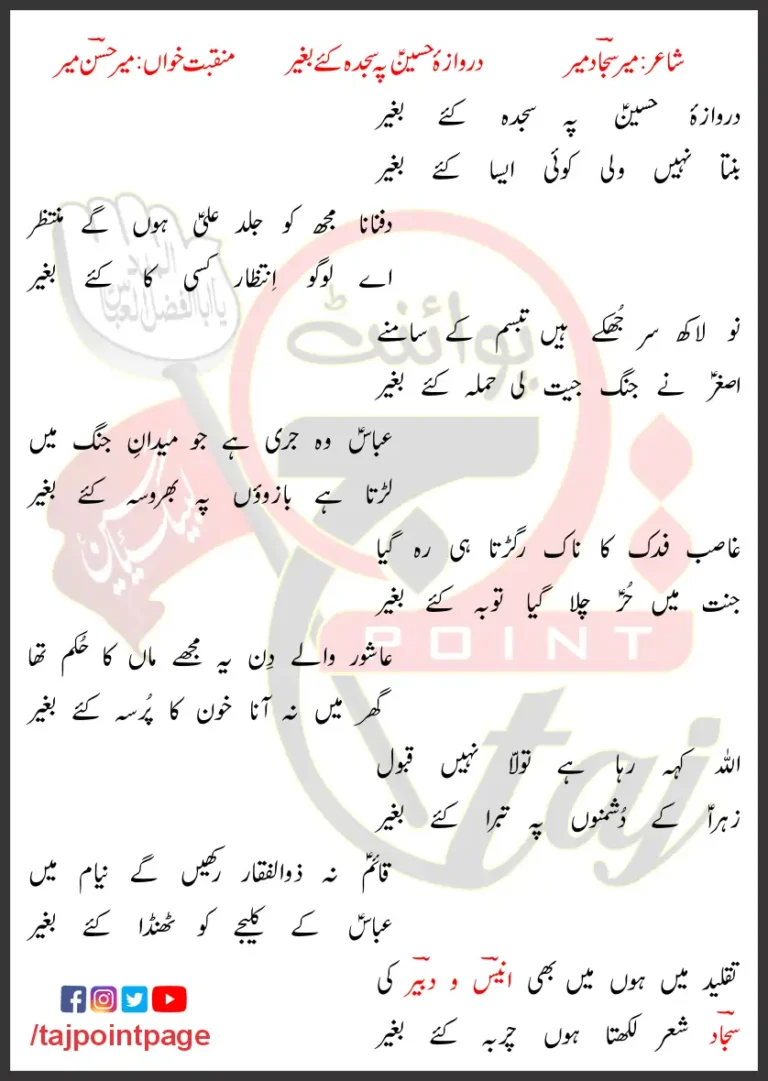 شاعر: میر سجاؔد میر
دروازۂ حسینؑ پہ سجدہ کئے بغیر
منقبت خواں: میر حسؔن میر
دروازۂ حسینؑ پہ سجدہ کئے بغیر
بنتا نہیں ولی کوئی ایسا کئے بغیر
دفنانا مجھ کو جلد علیؑ ہوں گے منتظر
اے لوگو اِنتظار کسی کا کئے بغیر
نو لاکھ سر جُھکے ہیں تبسم کے سامنے
اصغرؑ نے جنگ جیت لی حملہ کئے بغیر
عباسؑ وہ جری ہے جو میدانِ جنگ میں
لڑتا ہے بازوؤں پہ بھروسہ کئے بغیر
غاصب فدک کا ناک رگڑتا ہی رہ گیا
جنت میں حُرؑ چلا گیا توبہ کئے بغیر
عاشور والے دِن یہ مجھے ماں کا حُکم تھا
گھر میں نہ آنا خون کا پُرسہ کئے بغیر
اللہ کہہ رہا ہے تولّا نہیں قبول
زہراؑ کے دُشمنوں پہ تبرا کئے بغیر
قائمؑ نہ ذوالفقار رکھیں گے نیام میں
عباسؑ کے کلیجے کو ٹھنڈا کئے بغیر
تقلید میں ہوں میں بھی انیسؔ و دبیرؔ کی
سجاؔد شعر لکھتا ہوں چربہ کئے بغیر
پوائنٹ
تاج
POINT
taj
یا ابالفضل العباس
لبیک یا حسین
/tajpointpage